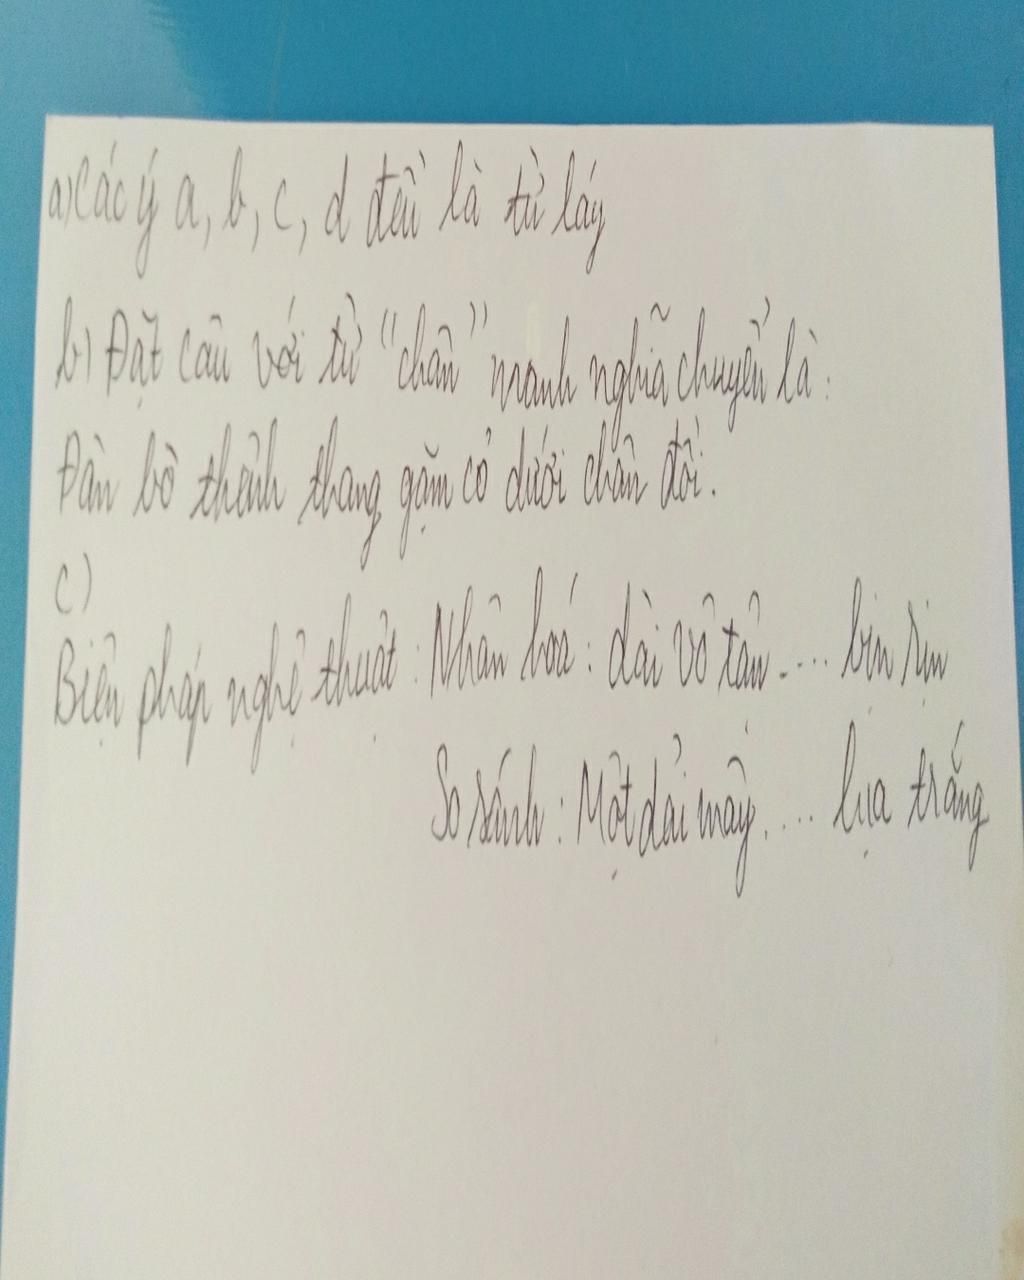 a) Các ý a, b, c, d đều là từ láy
b) Đặt câu với từ "chân" mang nghĩa chuyển là:
Đàn bò thảnh thang gặm cỏ dưới chân đồi.
c)
Biện pháp nghệ thuật: Nhân hoá: dài vô tận .... bịn rịn
So sánh: Một dải mây ..... lụa trắng